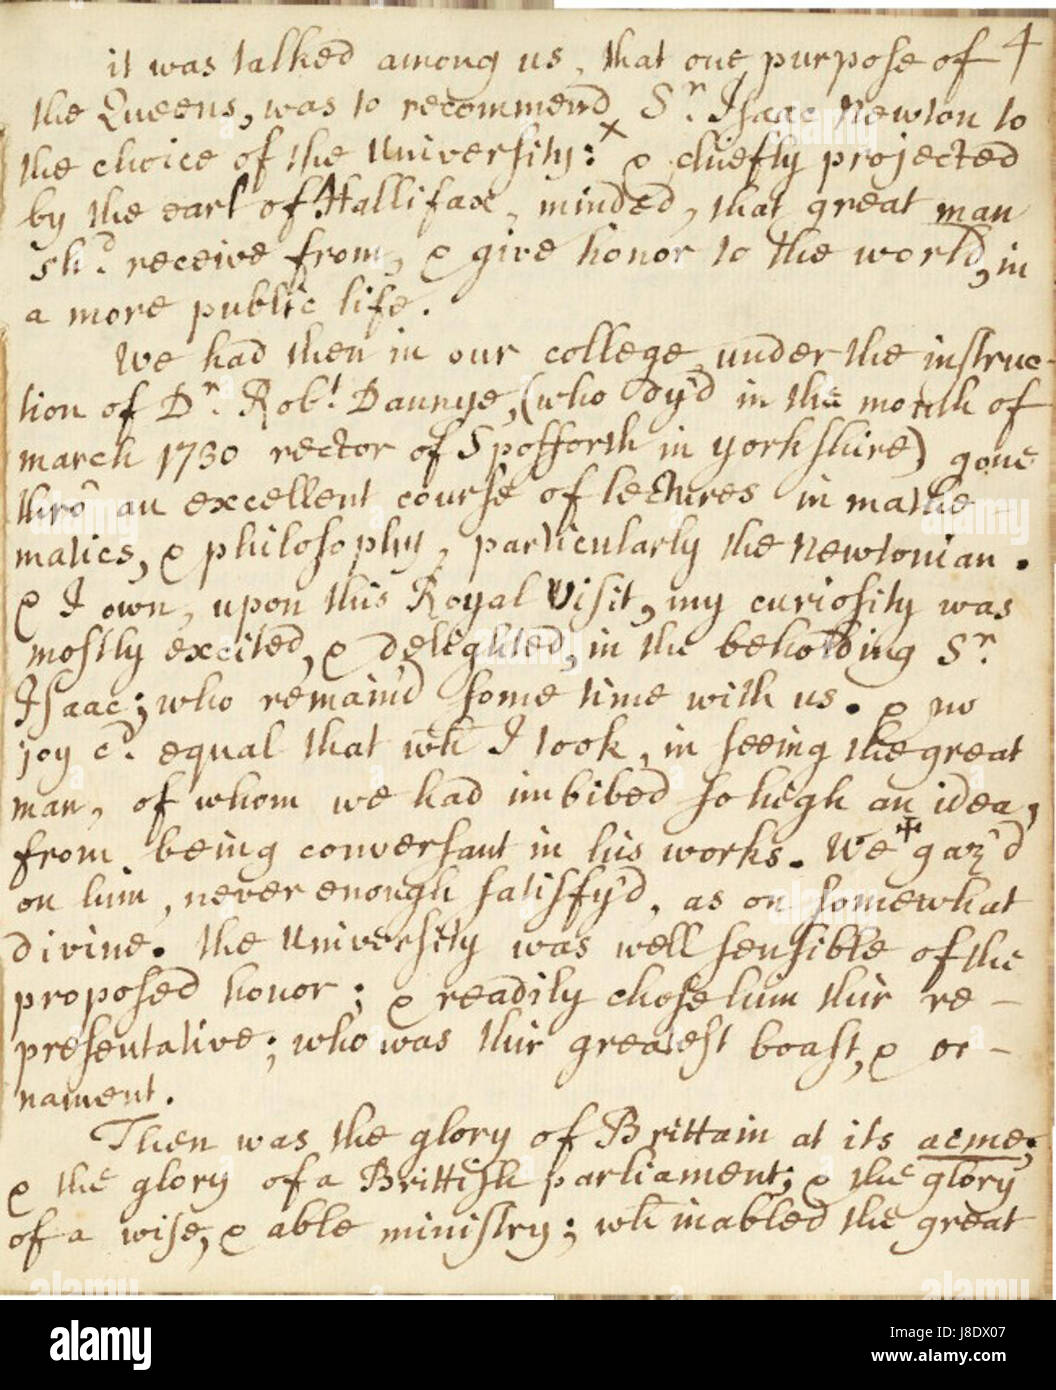 it was talked among us, that one purpose of 4
the Queens, was to recommend Sr. Isaac Newton to
the choice of the University:× & chiefly projected
by the earl of Hallifax, minded, that great man
shd. receive from, & give honor to the world, in
a more public life.
We had then in our college, under the instruc-
tion of Dr. Robt. Dannye, (who dy'd in the month of
march 1730 rector of Spofforth in yorkshire) gone
thro' an excellent course of lectures in mathe-
matics, & philosophy, particularly the Newtonian.
& I own, upon this Royal Visit, my curiosity was
mostly excited, & delighted, in the beholding Sr.
Isaac; who remaind some time with us. & no
joy cd. equal that wh I took, in seeing the great
man, of whom we had imbibed so high an idea,
from being conversant in his works. We ✠ gaz'd
on him, never enough satisfy'd, as on somewhat
divine. the University was well sensible of the
proposed honor; & readily chose him thir re-
presentative; who was thir greatest boast, & or-
nament.
Then was the glory of Brittain at its acme;
& the glory of a Brittish parliament; & the glory
of a wise, & able ministry; wh inabled the great
alamy
Image ID: J8DX07
www.alamy.com